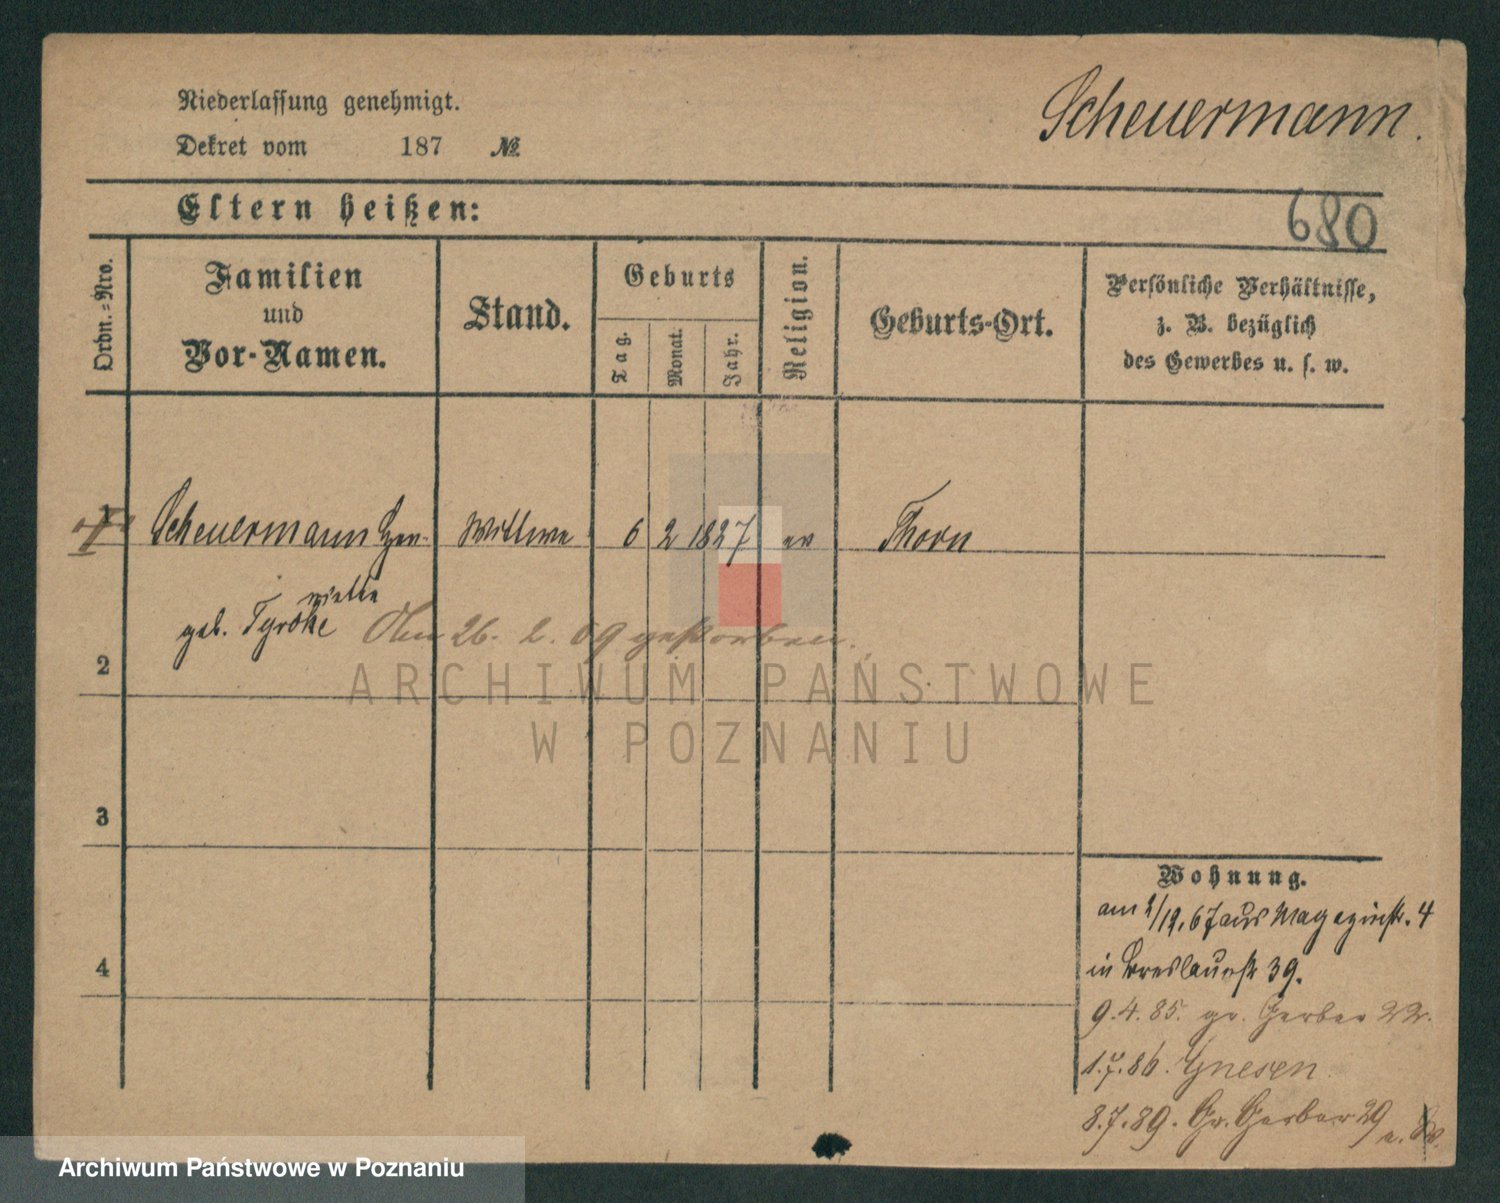 Niederlassung genehmigt.
Dekret vom 187 №
Scheuermann.
Eltern heißen:
680
Ordn.-Nro.
Familien
und
Vor-Namen.
Stand.
Geburts
Tag.
Monat.
Jahr.
Religion.
Geburts-Ort.
Persönliche Verhältnisse,
z. B. bezüglich
des Gewerbes u. s. w.
1 Scheuermann Hen- Wittwe 6 2 1827 ev Thorn
riette
geb. Tyroke
Am 26. 2. 09 gestorben.
2
3
4
ARCHIWUM PAŃSTWOWE
W POZNANIU
Wohnung.
am 2/12. 67 aus Magazinstr. 4
in Breslauerstr 39.
9.4.85. gr. Gerber 22.
1.7.86. Gnesen
8.7.89. Gr. Gerber 29
Archiwum Państwowe w Poznaniu